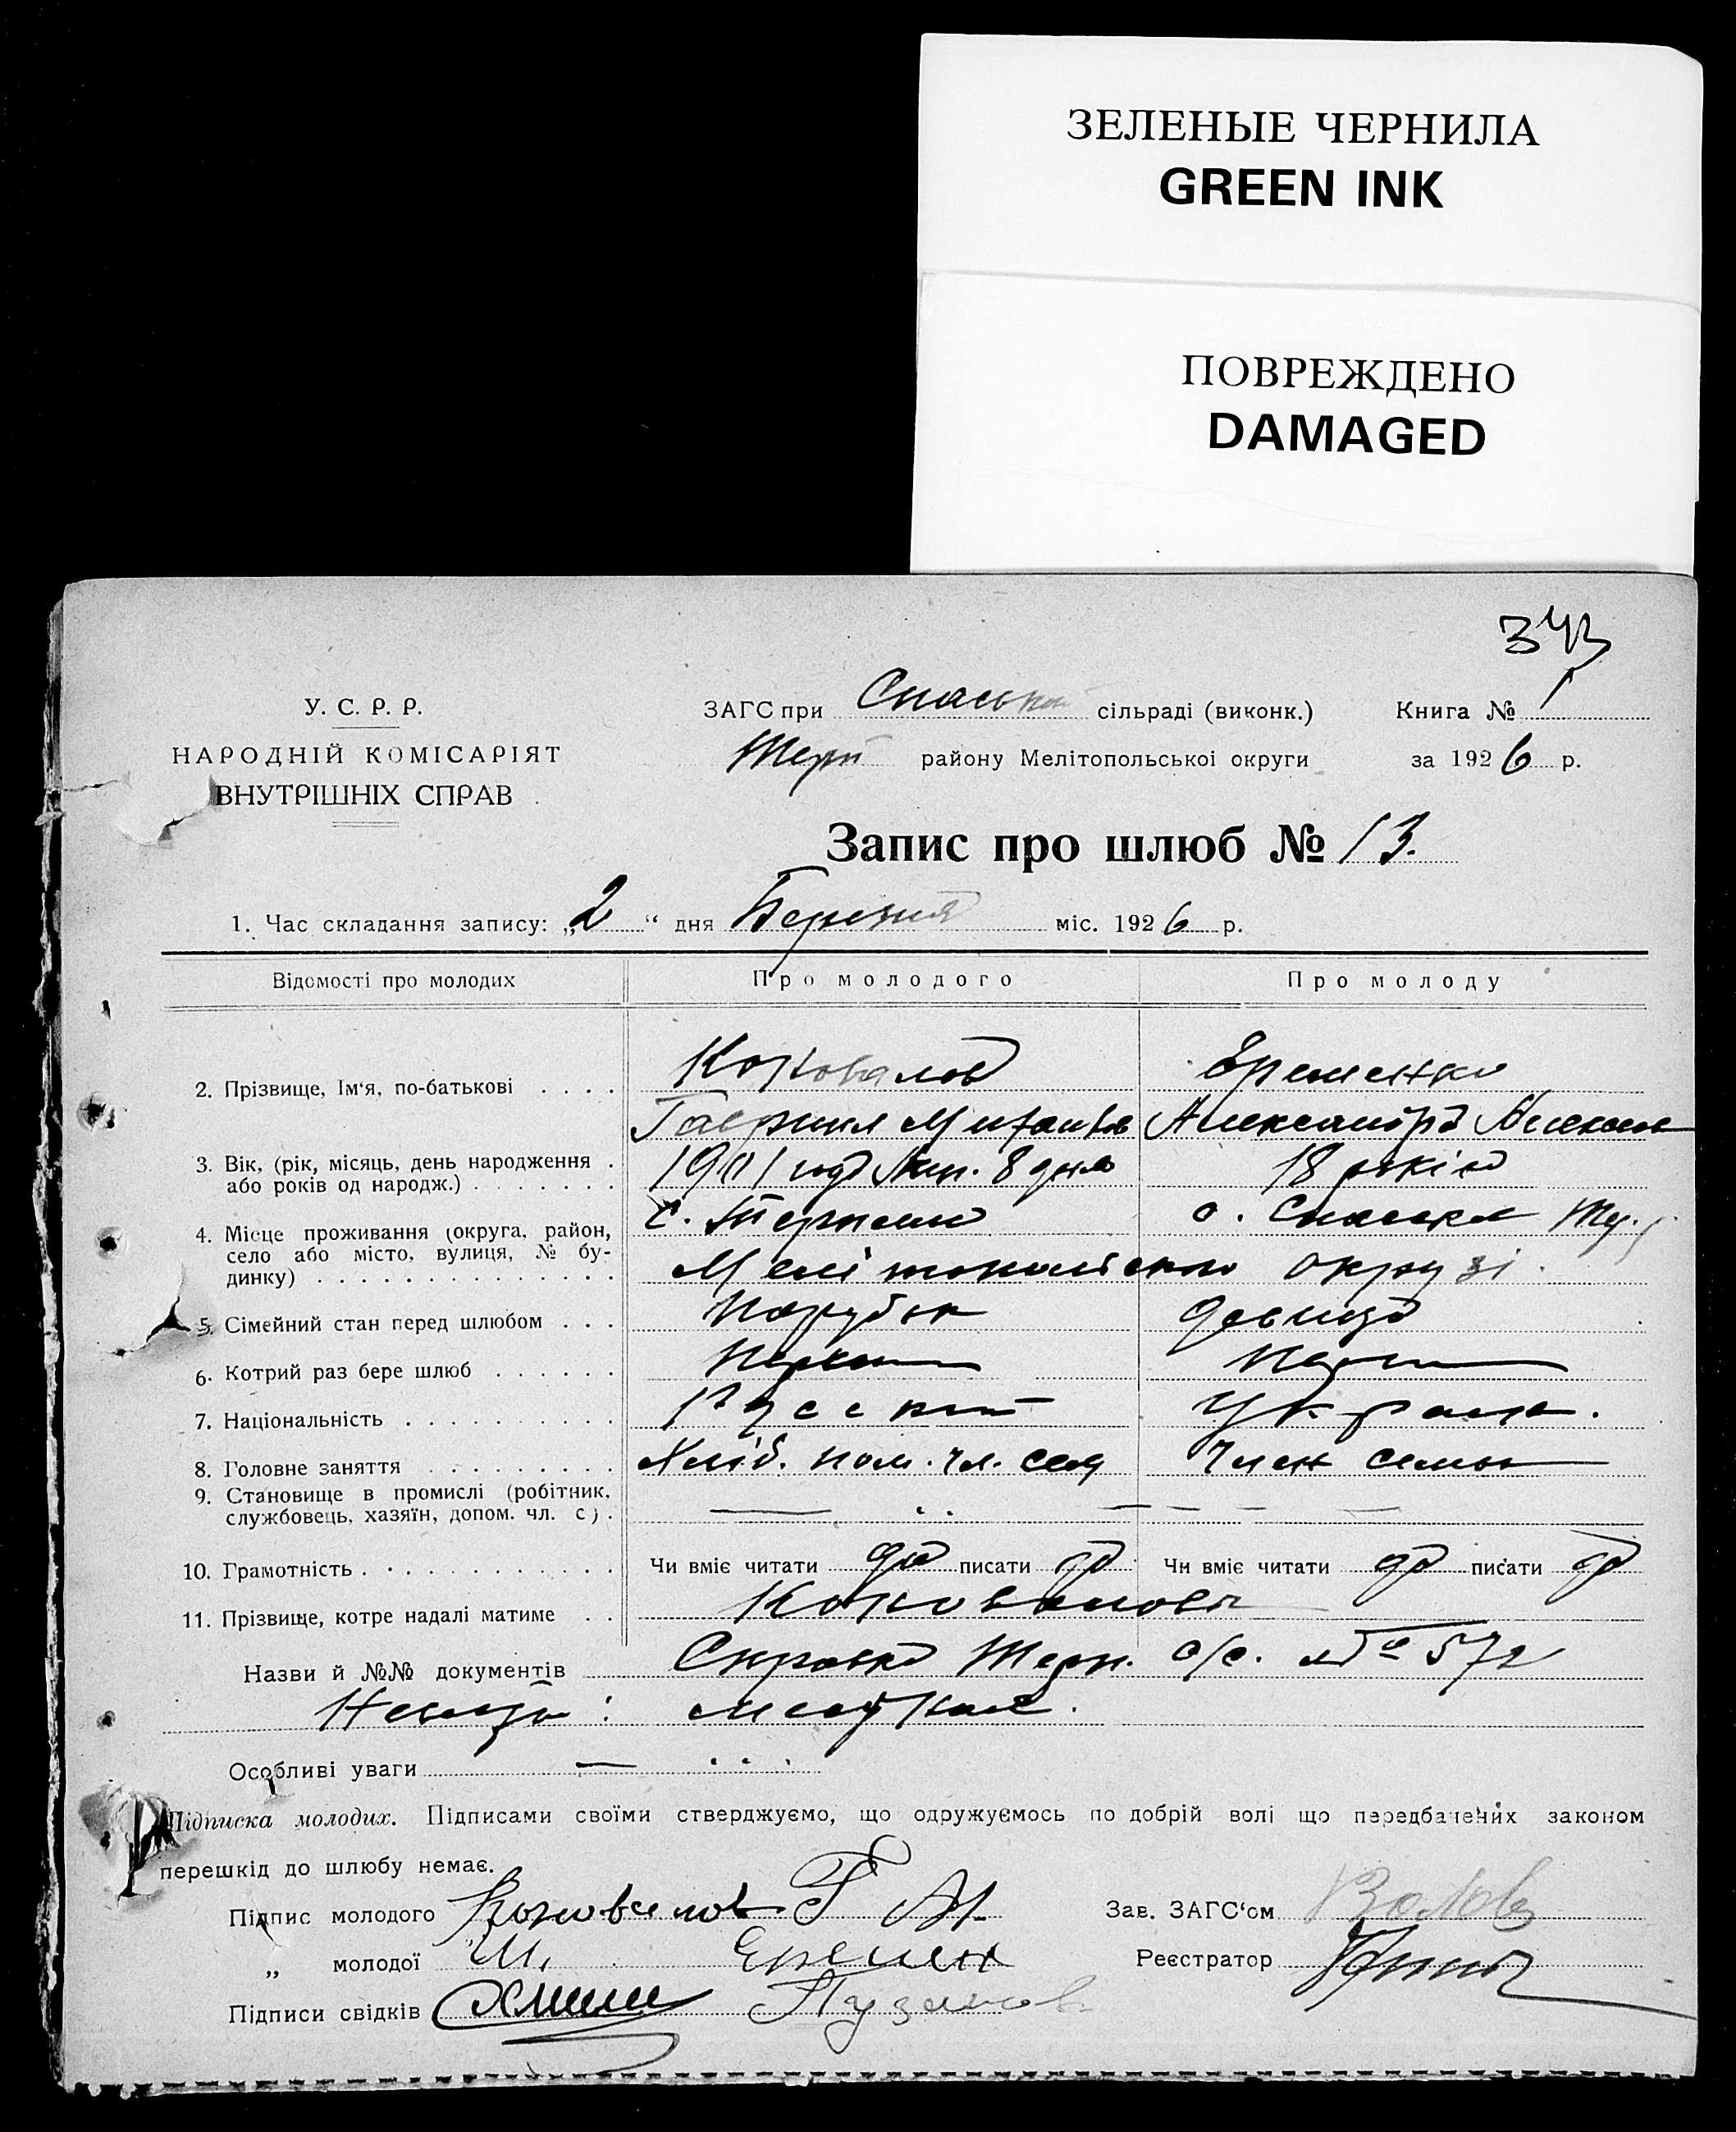 ЗЕЛЕНЫЕ ЧЕРНИЛА
GREEN INK
ПОВРЕЖДЕНО
DAMAGED
343
У. С. Р. Р. ЗАГС при Спаській сільраді (виконк.) Книга № 1
НАРОДНІЙ КОМІСАРІЯТ Терп району Мелітопольської округи за 1926 р.
ВНУТРІШНІХ СПРАВ
Запис про шлюб № 13.
1. Час складання запису: „2“ дня Березня міс. 1926 р.
Відомості про молодих Про молодого Про молоду
2. Прізвище, Ім'я, по-батькові . . . . Коновалов Еременко
Гавриил Александра
3. Вік, (рік, місяць, день народження . 1901 8 дня 18 років
або років од народж.) . . . . . . .
4. Місце проживання (округа, район, с. Терпение с. Спаська
село або місто, вулиця, № бу- Мелітопольської округі.
динку) . . . . . . . . . . . . . .
5. Сімейний стан перед шлюбом . . . Парубок девица
6. Котрий раз бере шлюб . . . . . .
7. Національність . . . . . . . . . . Русский Украин.
8. Головне заняття . . . . . . . . . Хліб. пом. чл. сем Член семьи
9. Становище в промислі (робітник,
службовець, хазяїн, допом. чл. с) .
10. Грамотність . . . . . . . . . . . Чи вміє читати да писати да Чи вміє читати да писати да
11. Прізвище, котре надалі матиме . . Коноваловы
Назви й №№ документів Справка Терп. с/с. № 572
Особливі уваги
Підписка молодих. Підписами своїми стверджуємо, що одружуємось по добрій волі що передбачених законом
перешкід до шлюбу немає.
Підпис молодого Коновалов Г М Зав. ЗАГС'ом
„ молодої Еремен Реєстратор
Підписи свідків Пузанов